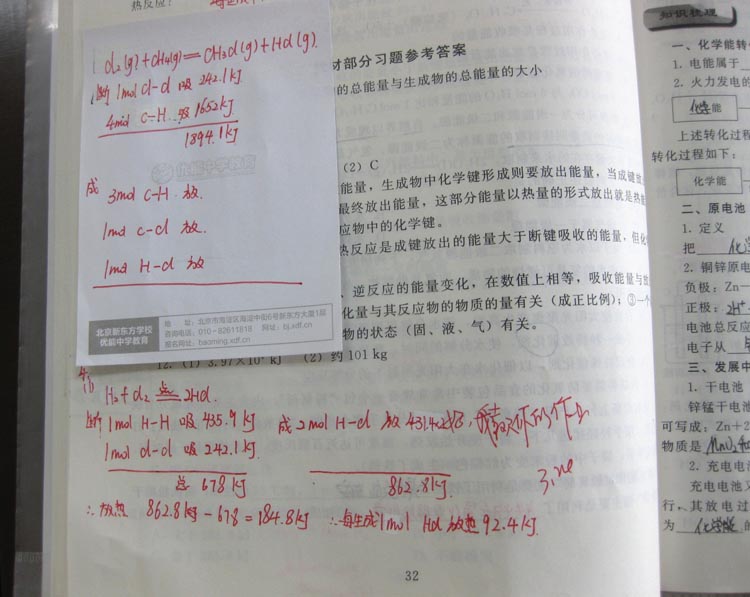 热反应?
Cl₂(g)+CH₄(g)=CH₃Cl(g)+HCl(g).
断1mol Cl-Cl 吸 242.1kJ
4mol C-H 吸1652kJ
1894.1kJ
成 3mol C-H 放
1mol C-Cl 放
1mol H-Cl 放
优能中学教育
北京新东方学校
优能中学教育
地 址:北京市海淀区海淀中街6号新东方大厦1层
咨询电话:010-82611818 网址:bj.xdf.cn
报名网址:baoming.xdf.cn
材部分习题参考答案
的总能量与生成物的总能量的大小
(2) C
能量,生成物中化学键形成则要放出能量,当成键放
最终放出能量,这部分能量以热量的形式放出就是热能
应物中的化学键。
热反应是成键放出的能量大于断键吸收的能量,但化
、逆反应的能量变化,在数值上相等,吸收能量与放
化量与其反应物的物质的量有关(成正比例);③一个
物的状态(固、液、气)有关。
12. (1) 3.97×10⁴ kJ (2) 约101 kg
H₂+Cl₂ 点燃 2HCl.
断1mol H-H 吸 435.9 kJ 成2mol H-Cl 放 431.4×2
1mol Cl-Cl 吸 242.1.
总 678 kJ 862.8kJ
∴放热 862.8kJ-678=184.8kJ ∴每生成1mol HCl 放热92.4kJ.
32
知识梳理
一、化学能转
1. 电能属于
2. 火力发电的
化学能
上述转化过程
转化过程如下:
化学能
二、原电池
1. 定义
把
2. 铜锌原电
负极:Zn-
正极:2H⁺
电池总反应
电子从
三、发展中
1. 干电池
锌锰干电池
可写成:Zn+2
物质是 MnO₂和
2. 充电电池
充电电池又
行,其放电过
为 化学能 的